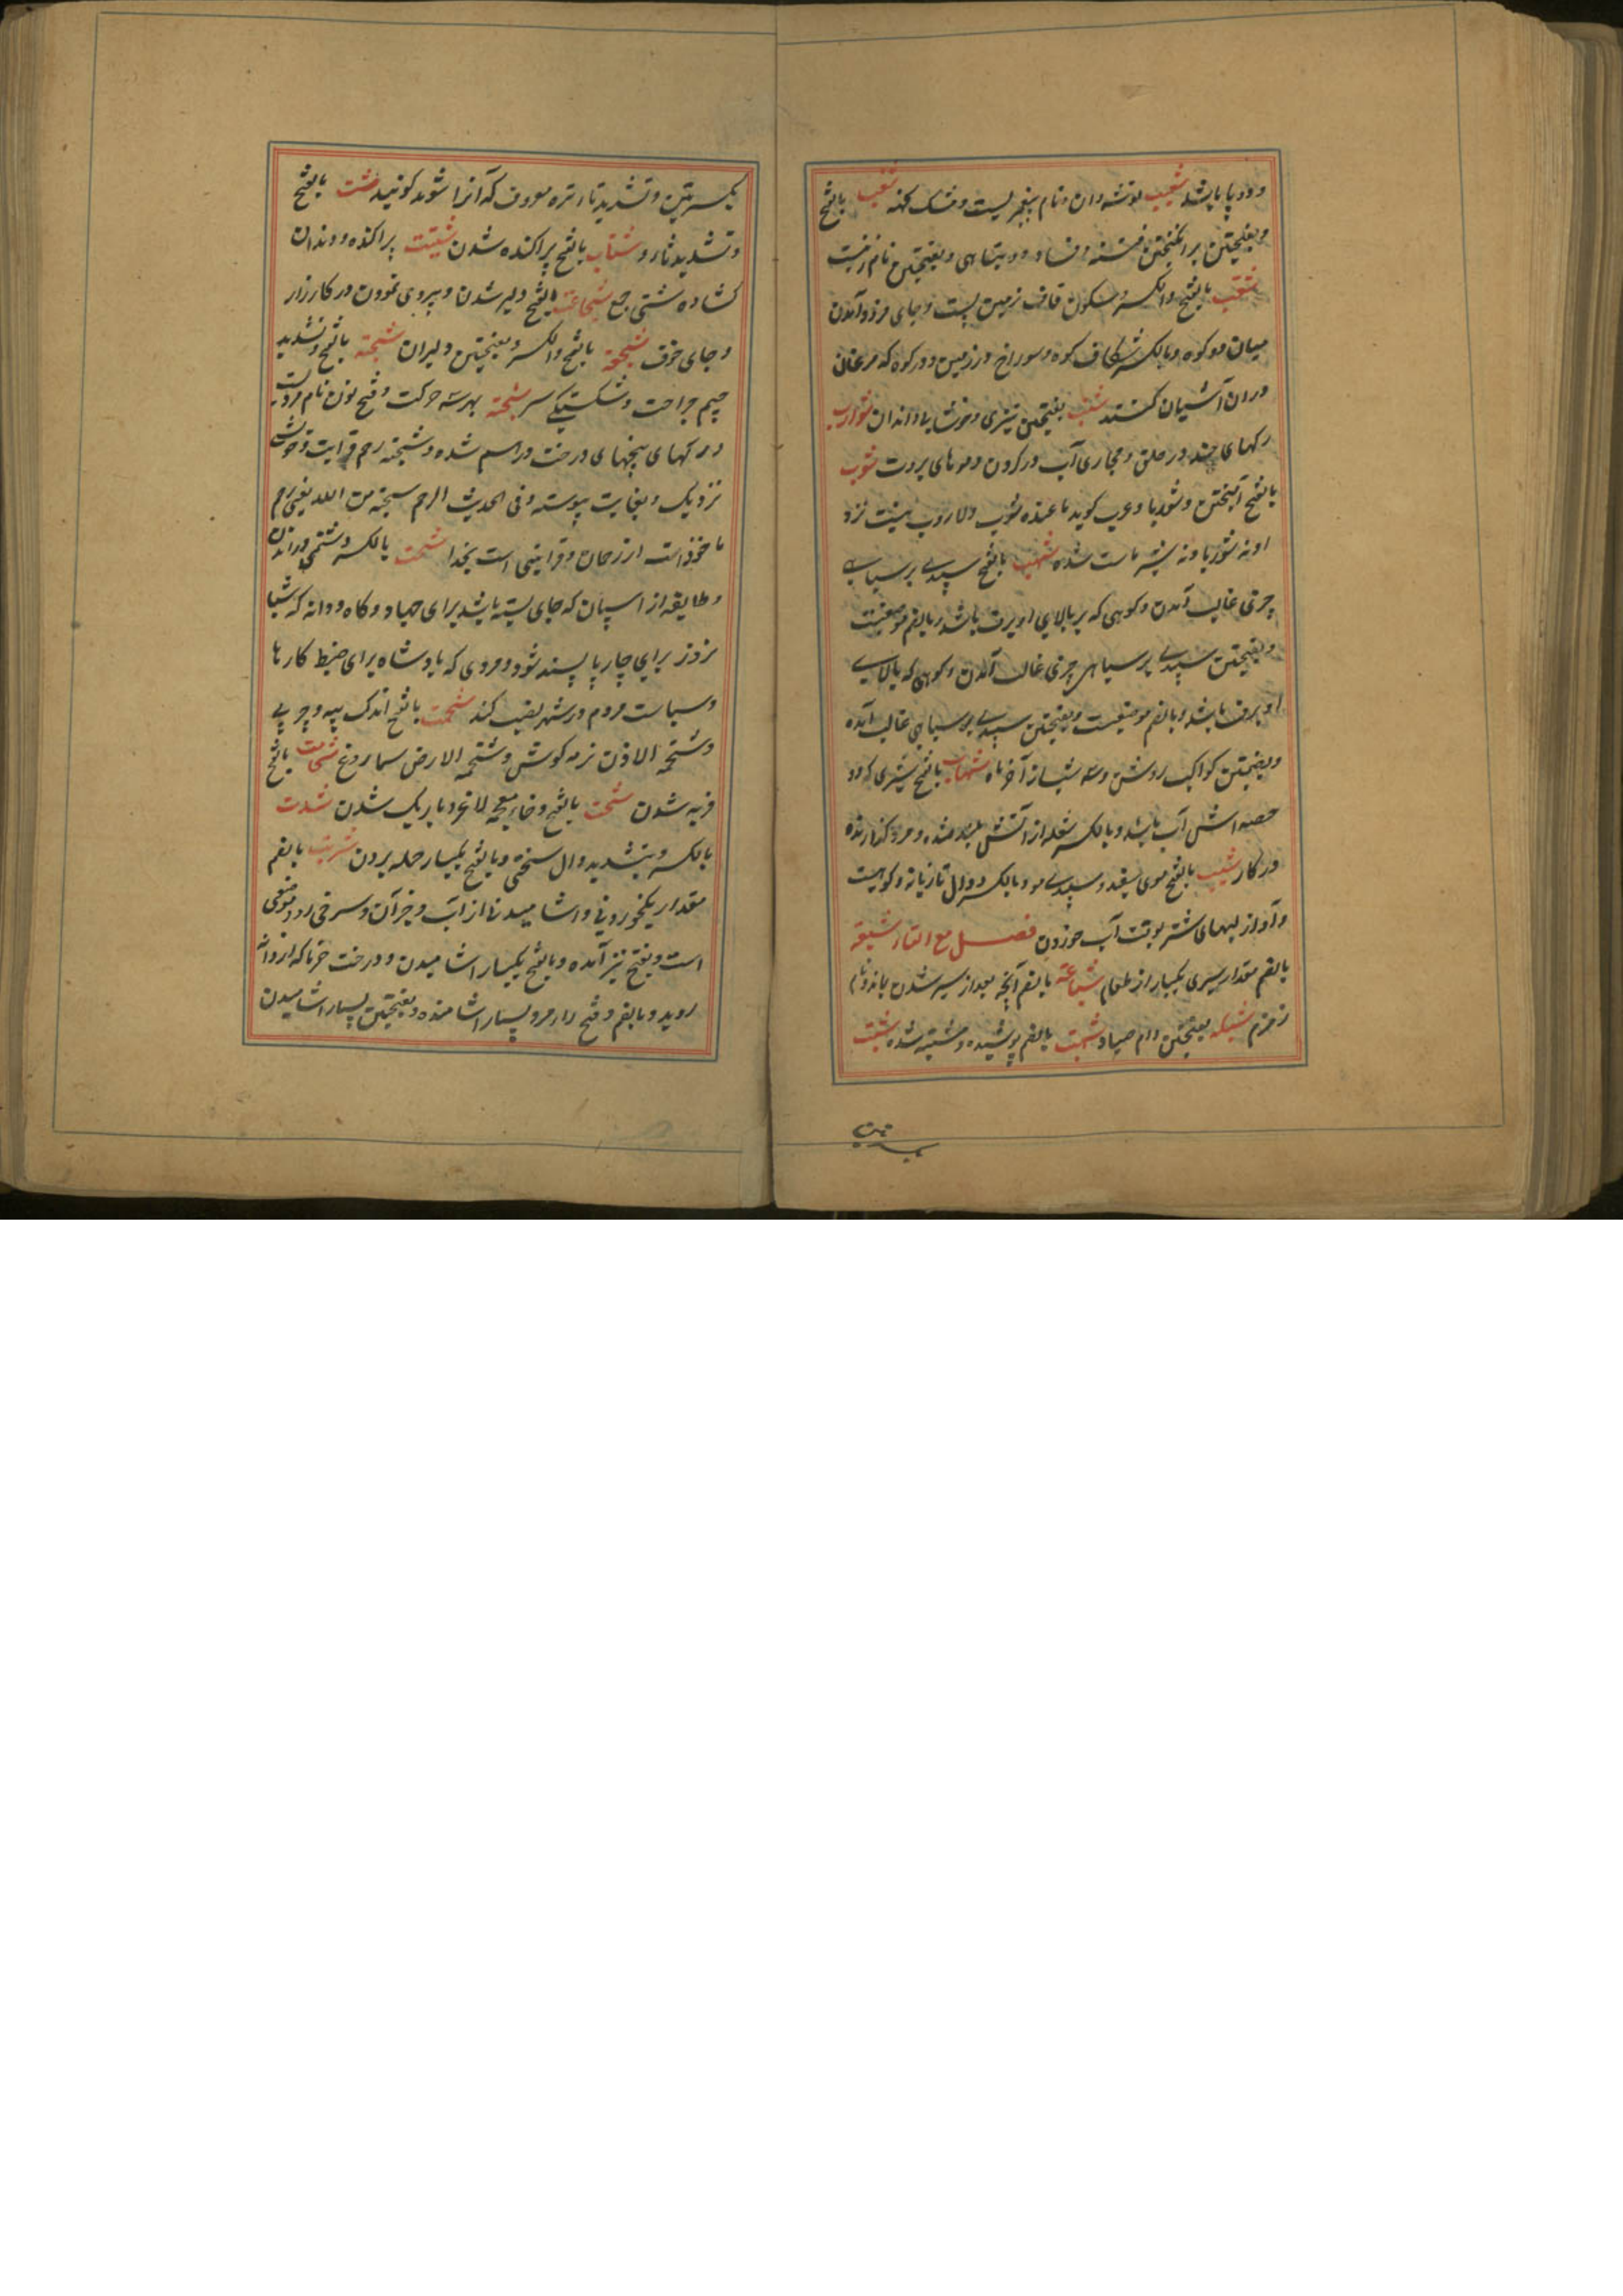 و دو پا باشد شعیب توشه دان و نام پیغمبریست و مشک کهنه شغب بالفتح
و بفتحتین برانگیختن فتنه و فساد و تباهی و بفتحتین نام زنیست
شقب بالفتح والکسر و سکون قاف زمین پست و جای فرود آمدن
میان دو کوه و بالکسر شکاف کوه و سوراخ در زمین و در کوه که مرغان
دران آشیان کنند شنب بفتحتین تیزی و خوشابی دندان شوارب
رکهای چند در حلق و مجاری آب در کردن و موهای بروت شوب
بالفتح آمیختن و شوربا و عرب کوید ما عنده شوب ولا روب نیست نزد
او نه شوربا و نه شیر ماست شده شهب بالفتح سپیدی بر سیاهی
چیزی غالب آمدن و کوهی که بر بالای او برف باشد و بالضم موضعیست
و بفتحتین سپیدی بر سیاهی چیزی غالب آمدن و کوهی که بالای
او برف باشد و بالضم موضعیست و بفتحتین سپیدی بر سیاهی غالب آمده
و بضمتین کواکب روشن و سه شب از آخر ماه شهاب بالفتح شیری که دو
حصه اش آب باشد و بالکسر شعله از آتش بلند شده و مرد کذارنده
در کار شیب بالفتح موی سفید و سپیدی مو و بالکسر دوال تازیانه و کوهیست
و آواز لبهای شتر بوقت آب خوردن فصل مع التاء شبعة
بالضم مقدار سیری یکبار از طعام شباعة بالضم آنچه بعد از سیر شدن بماند و نام
زمزم شبکه بفتحتین دام صیاد شبهت بالضم پوشیده و مشتبه شده شبت
بکسرتین و تشدید تا تره معروف که آنرا شوید کویند شت بالفتح
و تشدید تاء و شتات بالفتح پراکنده شدن شتیت پراکنده و دندان
کشاده شتی جمع شجاعت بالفتح دلیر شدن و پیروی نمودن در کارزار
و جای خوف شجعة بالفتح والکسر و بفتحتین دلیران شجة بالفتح و تشدید
جیم جراحت و شکستیکی سر شجنة بهر سه حرکت و فتح نون نام مردیست
و رکهای بیخهای درخت درهم شده و شجنة رحم قرابت و خویش
نزدیک و بغایت پیوسته و فی الحدیث الرحم شجنة من الله یعنی رحم
ماخوذ است از رحمان و قرابتی است بخدا شحنت بالکسر و دشمنی و راندن
و طایفه از اسپان که جای بسته باشد برای جهاد و کاه و دانه که شبا
نروز برای چارپا بسند شود و مردی که پادشاه برای ضبط کارها
و سیاست مردم در شهر نصب کند شحمت بالفتح اندک پیه و چربی
و شحمة الاذن نرمه کوش و شحمة الارض سماروغ شحامت بالفتح
فربه شدن شخت بالفتح و خاء معجمه لاغر و باریک شدن شدت
بالکسر و بتشدید دال سختی و بالفتح یکبار حمله بردن شربت بالضم
مقدار یکخوردنی و اشامیدنی از آب و جز آن و سرخی رو و موضعی
است و بفتح نیز آمده و بالفتح یکبار اشامیدن و درخت خرما که از دانه
روید و بالضم و فتح راء مرد بسیار اشامنده و بفتحتین بسیار اشامیدن